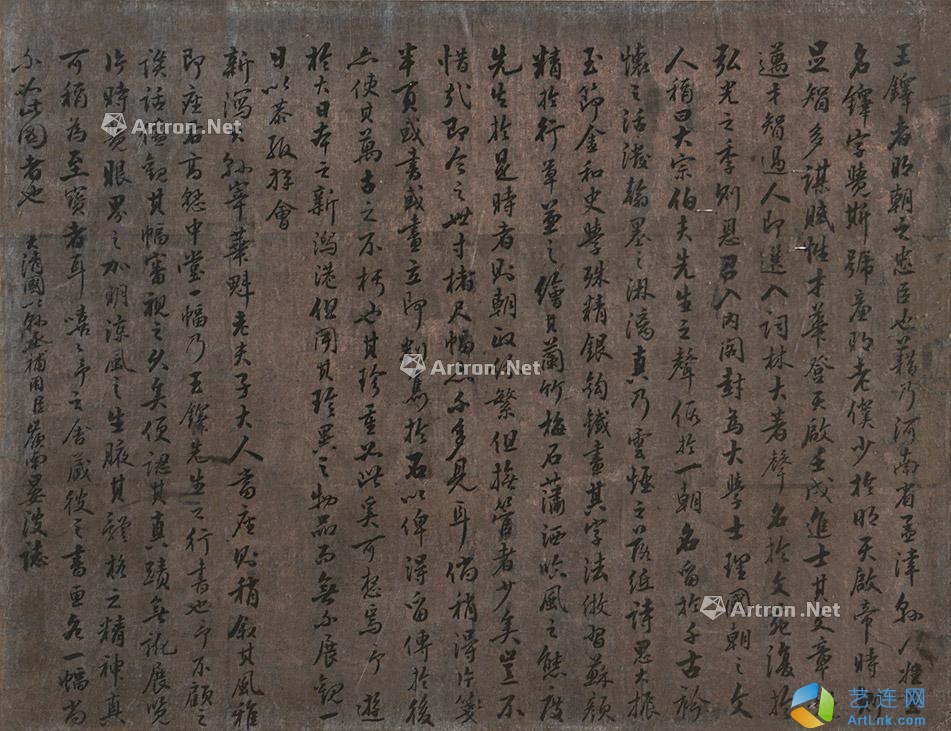 王鐸者明朝之忠臣也籍乃河南省孟津縣人姓王
名鐸字覺斯號 老僕少於明天啟帝時則
足智多謀賦性才華登天啟壬戌進士其文章
邁才智過人即選入詞林大著聲名於文苑復於
弘光之季則恩召入內閣封為大學士理國朝之文
人稱曰大宗伯夫先生之聲 於一朝名留於千古
懷之活潑翰墨之淋漓真乃雲煙之落紙詩思大振
玉節金和史學殊精銀鉤鐵畫其字法倣習蘇顏
精於行草並之繪其蘭竹梅石蕭洒臨風之態度
先生於是時者則朝政 繁但 者少矣豈不
惜哉即今之世寸楮尺幅 不多見耳倘稍得片箋
半頁或書或畫立即 於石以俾得留傳於後
亦使其萬古之不朽也其珍重 此矣可 焉予遊
於大日本之新瀉港但聞其珍異之物品而無不展觀一
日以茶 會
新瀉大 宰華魁老夫子大人 座則稍叙其風雅
即座右高懸中堂一幅乃王鐸先生之行書也予不顧之
談話 觀其幅審視之久矣便認其真蹟無訛展覽
片時 眼界之加明涼風之生腋其 格之精神真
可稱為至寶者耳嘻嘻予之舍藏彼之書 名一幅尚
不如此圖者也 大清國 補用 嶺南 波誌
Artron.Net
Artron.Net
Artron.Net
Artron.Net
艺连网
ArtLnk.com